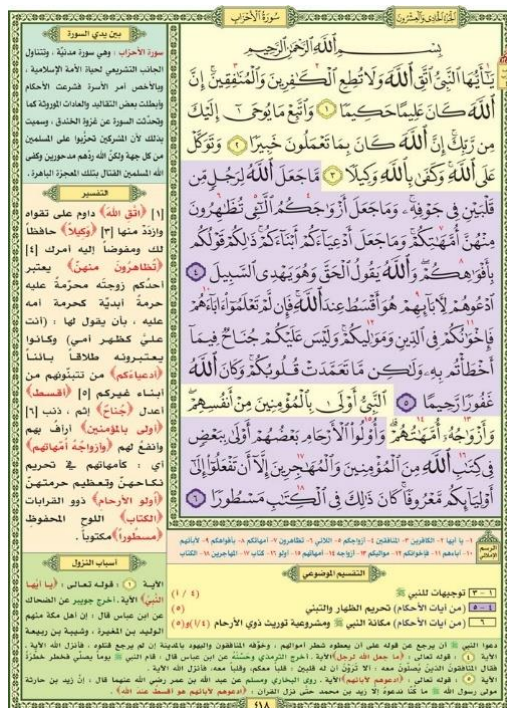 الجزء الحادي والعشرون
سُورَةُ الأَحْزَابِ
بِسْمِ اللَّهِ الرَّحْمَنِ الرَّحِيمِ
يَٰٓأَيُّهَا ٱلنَّبِىُّ ٱتَّقِ ٱللَّهَ وَلَا تُطِعِ ٱلْكَٰفِرِينَ وَٱلْمُنَٰفِقِينَ إِنَّ
ٱللَّهَ كَانَ عَلِيمًا حَكِيمًا ١ وَٱتَّبِعْ مَا يُوحَىٰٓ إِلَيْكَ
مِن رَّبِّكَ إِنَّ ٱللَّهَ كَانَ بِمَا تَعْمَلُونَ خَبِيرًا ٢ وَتَوَكَّلْ
عَلَى ٱللَّهِ وَكَفَىٰ بِٱللَّهِ وَكِيلًا ٣ مَّا جَعَلَ ٱللَّهُ لِرَجُلٍ مِّن
قَلْبَيْنِ فِى جَوْفِهِۦ وَمَا جَعَلَ أَزْوَٰجَكُمُ ٱلَّٰٓـِٔى تُظَٰهِرُونَ
مِنْهُنَّ أُمَّهَٰتِكُمْ وَمَا جَعَلَ أَدْعِيَآءَكُمْ أَبْنَآءَكُمْ ذَٰلِكُمْ قَوْلُكُم
بِأَفْوَٰهِكُمْ وَٱللَّهُ يَقُولُ ٱلْحَقَّ وَهُوَ يَهْدِى ٱلسَّبِيلَ ٤
ٱدْعُوهُمْ لِءَابَآئِهِمْ هُوَ أَقْسَطُ عِندَ ٱللَّهِ فَإِن لَّمْ تَعْلَمُوٓا۟ ءَابَآءَهُمْ
فَإِخْوَٰنُكُمْ فِى ٱلدِّينِ وَمَوَٰلِيكُمْ وَلَيْسَ عَلَيْكُمْ جُنَاحٌ فِيمَآ
أَخْطَأْتُم بِهِۦ وَلَٰكِن مَّا تَعَمَّدَتْ قُلُوبُكُمْ وَكَانَ ٱللَّهُ
غَفُورًا رَّحِيمًا ٥ ٱلنَّبِىُّ أَوْلَىٰ بِٱلْمُؤْمِنِينَ مِنْ أَنفُسِهِمْ
وَأَزْوَٰجُهُۥٓ أُمَّهَٰتُهُمْ وَأُو۟لُوا۟ ٱلْأَرْحَامِ بَعْضُهُمْ أَوْلَىٰ بِبَعْضٍ
فِى كِتَٰبِ ٱللَّهِ مِنَ ٱلْمُؤْمِنِينَ وَٱلْمُهَٰجِرِينَ إِلَّآ أَن تَفْعَلُوٓا۟ إِلَىٰٓ
أَوْلِيَآئِكُم مَّعْرُوفًا كَانَ ذَٰلِكَ فِى ٱلْكِتَٰبِ مَسْطُورًا ٦
الرسم الإملائي
١- يا أيها ٢- الكافرين ٣- المنافقين ٤- أزواجكم ٥- اللائي ٦- تظاهرون ٧- أمهاتكم ٨- بأفواهكم ٩- لآبائهم
١٠- آباءهم ١١- فإخوانكم ١٢- مواليكم ١٣- أزواجه ١٤- أمهاتهم ١٥- أولو ١٦- كتاب ١٧- المهاجرين ١٨- الكتاب
التقسيم الموضوعي
١ - ٣ توجيهات للنبي ﷺ (١ / ٤)
٤ - ٥ (من آيات الأحكام) تحريم الظهار والتبني (٥)
٦ (من آيات الأحكام) مكانة النبي ﷺ ومشروعية توريث ذوي الأرحام (١/٤)و(٥)
بين يدي السورة
سورة الأحزاب : وهي سورة مدنيّة، وتتناول
الجانب التشريعي لحياة الأمة الإسلامية ،
وبالأخص أمر الأسرة فشرعت الأحكام
وأبطلت بعض التقاليد والعادات الموروثة كما
وتحدّثت السورة عن غزوة الخندق ، وسميت
بذلك لأن المشركين تحزّبوا على المسلمين
من كل جهة ولكنّ الله ردّهم مدحورين وكفى
الله المسلمين القتال بتلك المعجزة الباهرة.
التفسير
[١] ﴿اتّقِ الله﴾ داوم على تقواه
وازدَدْ منها [٣] ﴿وكيلاً﴾ حافظاً
لك ومفوضاً إليه أمرك [٤]
﴿تظاهرون منهنّ﴾ يعتبر
أحدُكم زوجتَه محرّمة عليه
حرمة أبديّة كحرمة أمه
عليه ، بأن يقول لها : (أنت
عليّ كظهر أمي) وكانوا
يعتبرونه طلاقاً بائناً
﴿أدعياءكم﴾ من تتبنّونهم من
أبناء غيركم [٥] ﴿أقسط﴾
أعدل ﴿جُناحٌ﴾ إثم ، ذنب [٦]
﴿أولى بالمؤمنين﴾ أرأف بهم
وأنفع لهم ﴿وأزواجُه أمهاتُهم﴾
أي : كأمهاتهم في تحريم
نكاحهنّ وتعظيم حرمتهنّ
﴿أولو الأرحام﴾ ذوو القرابات
﴿الكتاب﴾ اللوح المحفوظ
﴿مسطوراً﴾ مكتوباً.
أسباب النزول
الآية ١ : قوله تعالى : ﴿يا أيها
النّبيُّ﴾ الآية. أخرج جويبر عن الضحاك
عن ابن عباس قال : إن أهل مكة منهم
الوليد بن المغيرة ، وشيبة بن ربيعة
دعوا النبي ﷺ أن يرجع عن قوله على أن يعطوه شطر أموالهم ، وخوّفه المنافقون واليهود بالمدينة إن لم يرجع قتلوه ، فأنزل الله الآية .
الآية ٤ : قوله تعالى : ﴿ما جعل الله لرجل﴾ الآية. أخرج الترمذي وحسّنه عن ابن عباس قال : قام النبي ﷺ يوماً يصلّي فخطر خطرة
فقال المنافقون الذين يصلّون معه : ألا ترون أن له قلبين ، قلباً معكم، وقلباً معه. فأنزل الله الآية .
الآية ٥ : قوله تعالى : ﴿ادعوهم لآبائهم﴾ الآية . روى البخاري ومسلم عن عبد الله بن عمر رضي الله عنهما قال : إنّ زيد بن حارثة
مولى رسول الله ﷺ ما كنا ندعوه إلا زيد بن محمد حتّى نزل القرآن : ﴿ادعوهم لآبائهم هو أقسط عند الله﴾ .
٤١٨